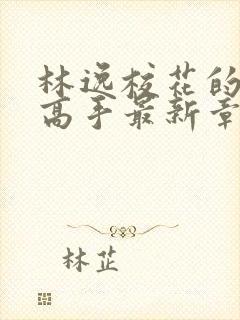 林逸校花的
高手最新章
林芷